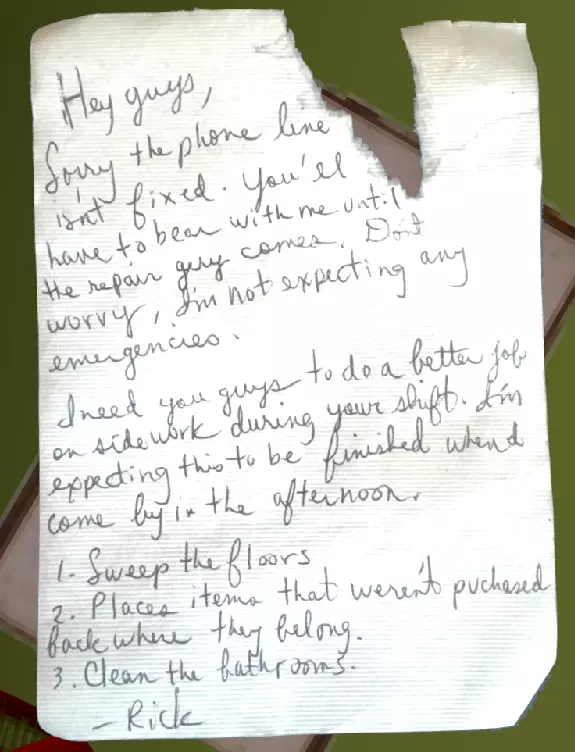 Hey guys,
Sorry the phone line
isn't fixed. You'll
have to bear with me until
the repair guy comes. Don't
worry, I'm not expecting any
emergencies.
I need you guys to do a better job
on side work during your shift. I'm
expecting this to be finished when I
come by in the afternoon.
1. Sweep the floors
2. Places items that weren't puchased
back where they belong.
3. Clean the bathrooms.
- Rick